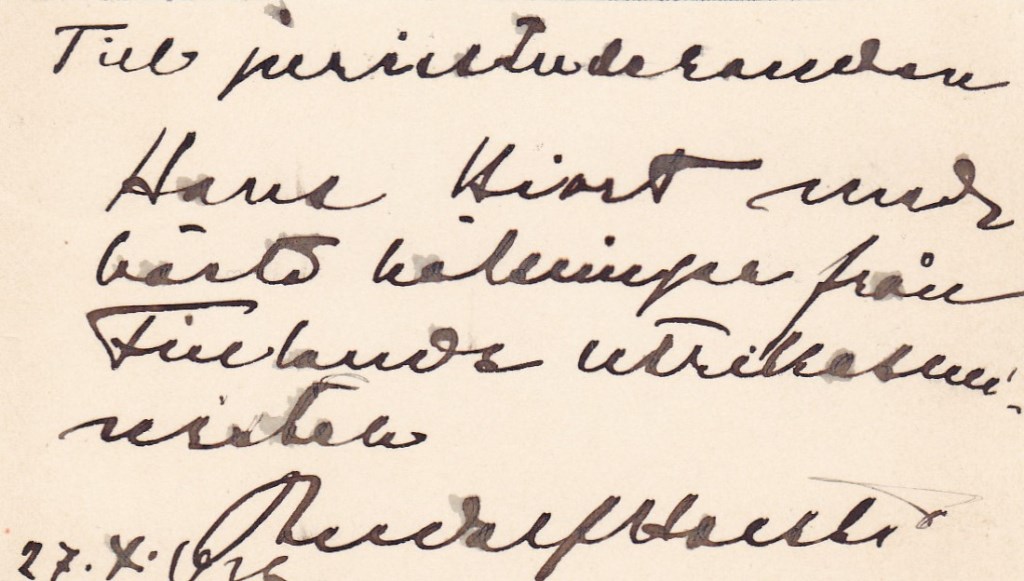 Till jurisstuderanden
Hans Hiort med
bästa hälsningar från
Finlands utrikesmi-
nister
Rudolf Holsti
27.X.1936